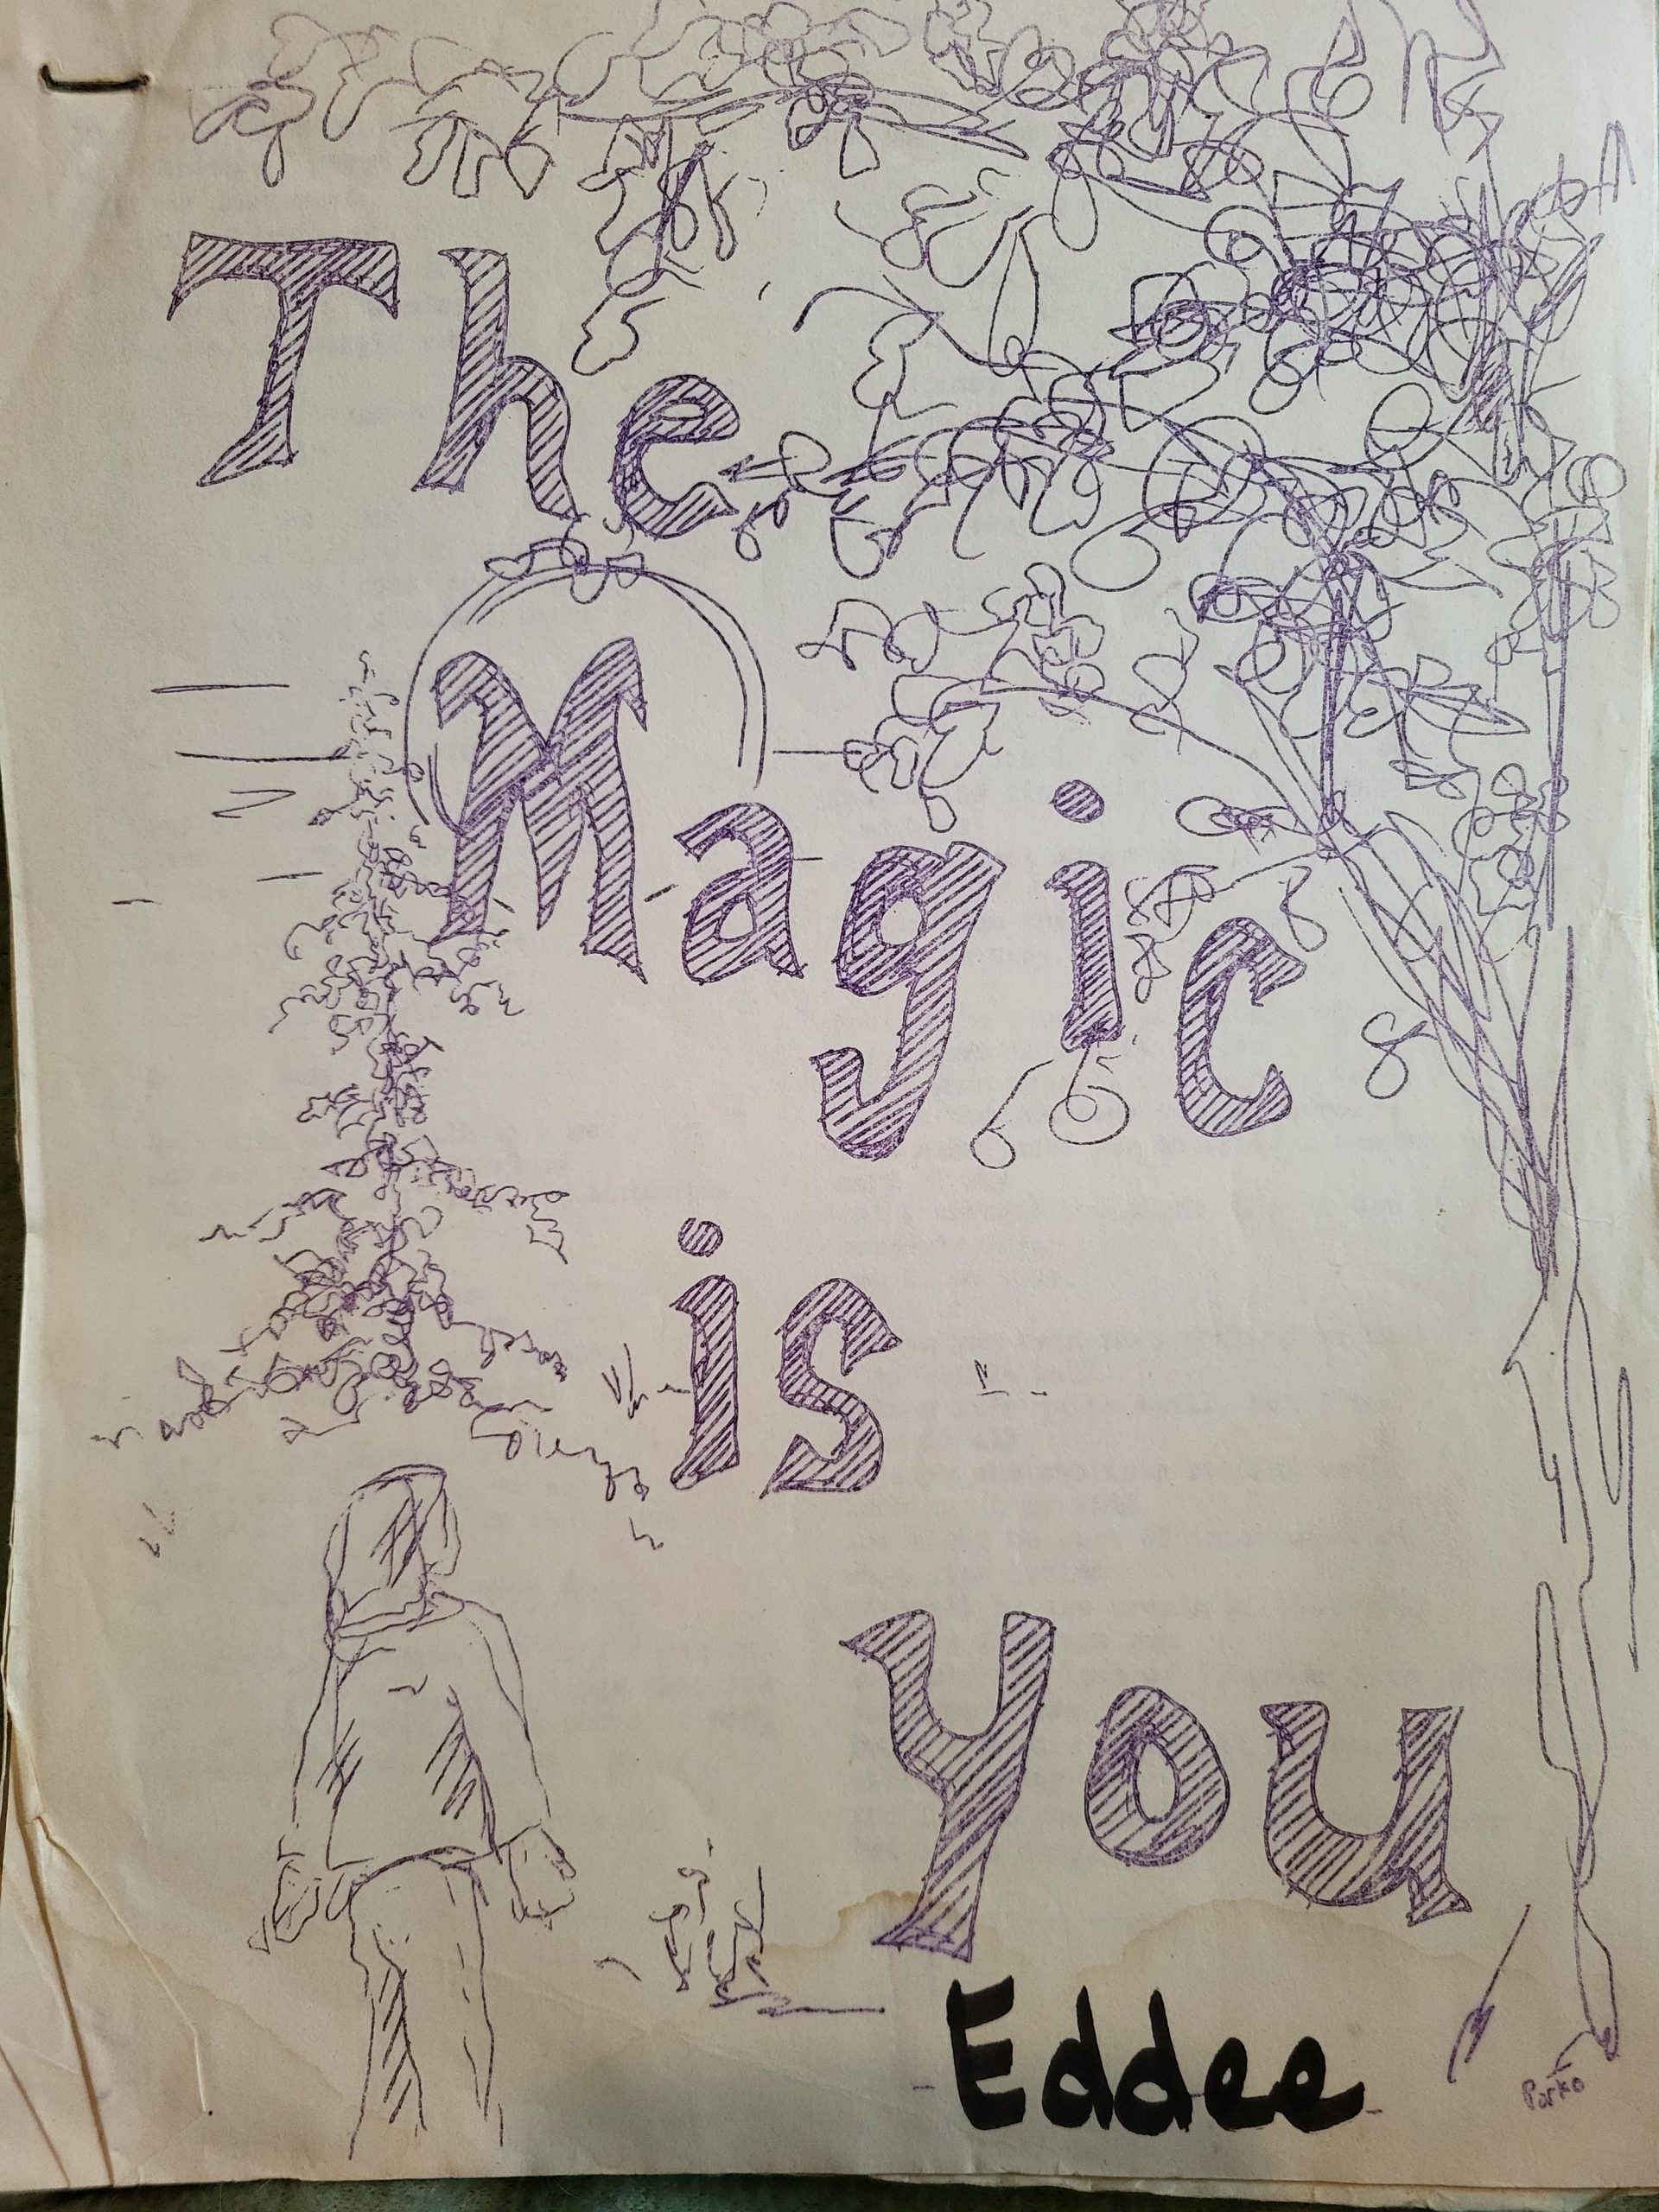 The
Magic
is
You
Eddee
Parko